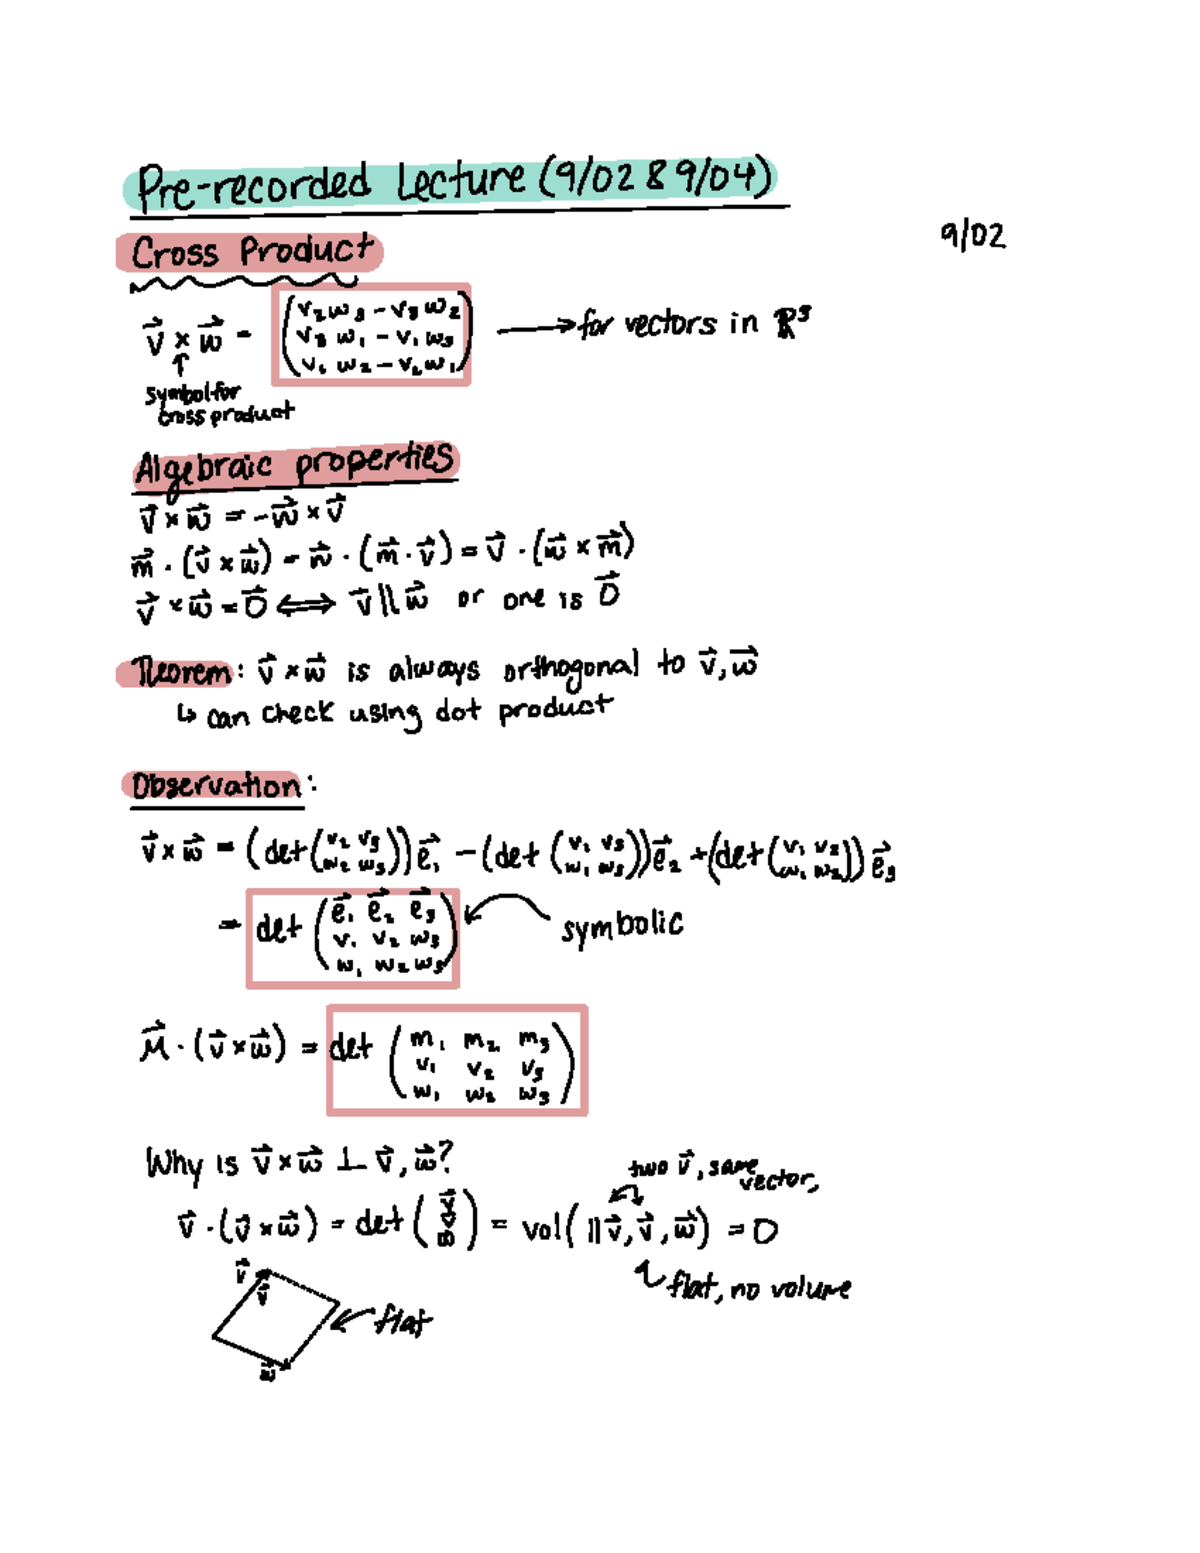 Pre-recorded Lecture (9/02 & 9/04)
9/02
Cross Product
v⃗ × w⃗ = (v₂w₃ - v₃w₂
v₃w₁ - v₁w₃
v₁w₂ - v₂w₁) ⟶ for vectors in ℝ³
↑
symbol for
cross product
Algebraic properties
v⃗ × w⃗ = -w⃗ × v⃗
m⃗ · (v⃗ × w⃗) = w⃗ · (m⃗ · v⃗) = v⃗ · (w⃗ × m⃗)
v⃗ × w⃗ = 0⃗ ⟺ v⃗ ∥ w⃗ or one is 0⃗
Theorem: v⃗ × w⃗ is always orthogonal to v⃗, w⃗
↳ can check using dot product
Observation:
v⃗ × w⃗ = (det(v₂ v₃ / w₂ w₃))e⃗₁ - (det(v₁ v₃ / w₁ w₃))e⃗₂ + (det(v₁ v₂ / w₁ w₂))e⃗₃
= det (e⃗₁ e⃗₂ e⃗₃
v₁ v₂ w₃
w₁ w₂ w₃) symbolic
M⃗ · (v⃗ × w⃗) = det (m₁ m₂ m₃
v₁ v₂ v₃
w₁ w₂ w₃)
Why is v⃗ × w⃗ ⊥ v⃗, w⃗?
two v⃗, same
vector,
v⃗ · (v⃗ × w⃗) = det (v⃗ / v⃗ / w⃗) = vol( ∥ v⃗, v⃗, w⃗) = 0
flat, no volume
v⃗
v⃗
flat
w⃗